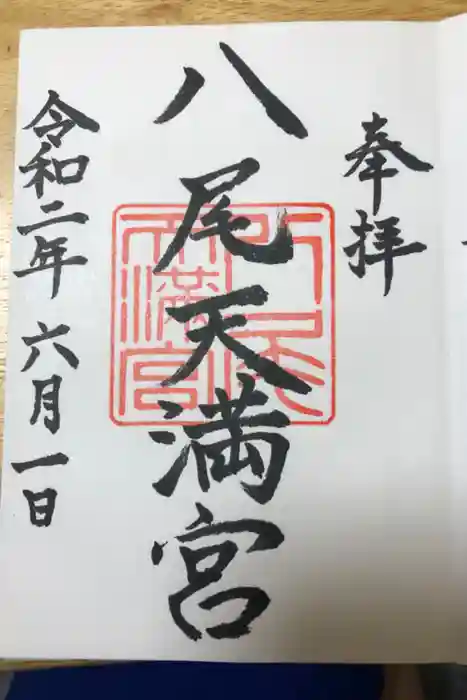 奉拝
八尾天満宮
令和二年六月一日